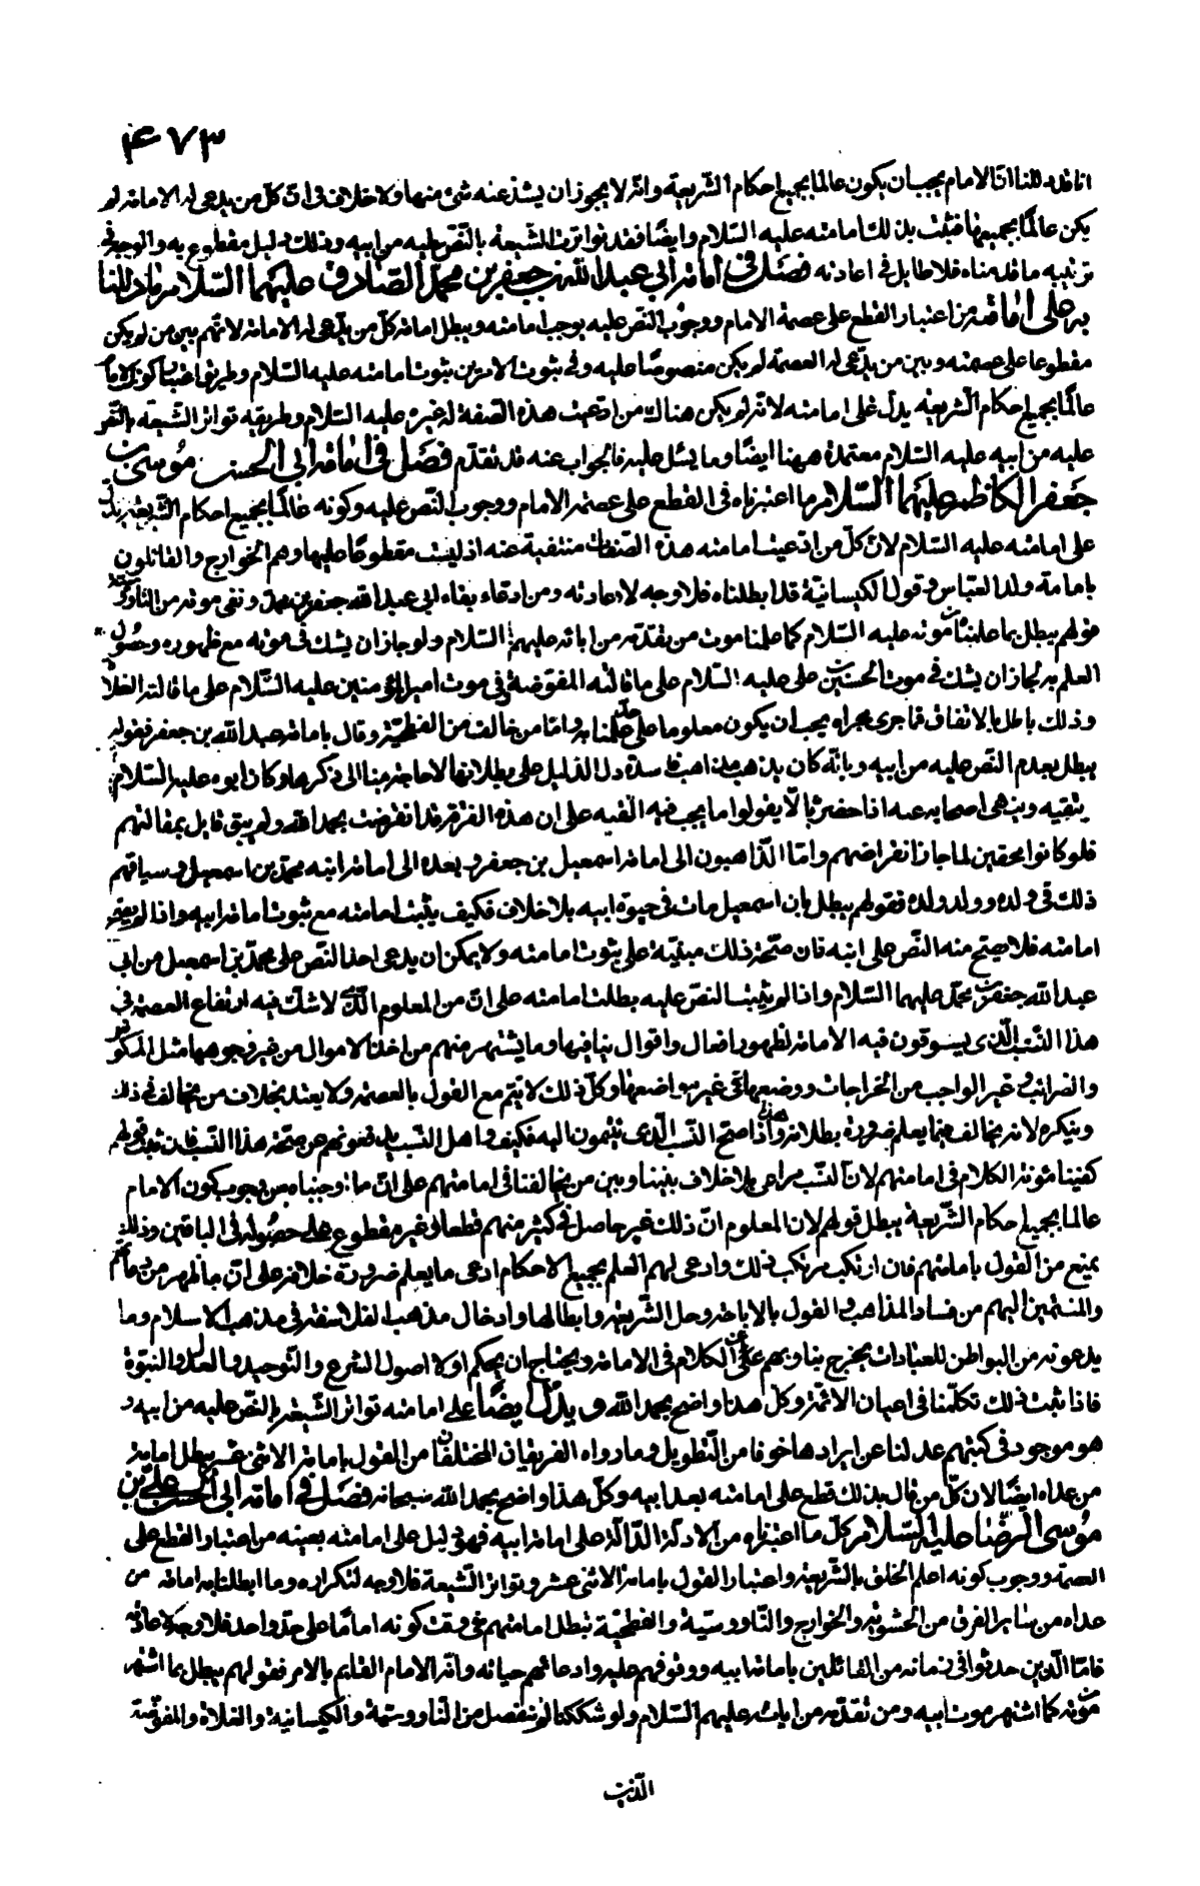 ۴۷۳
انا قد دللنا ان الامام يجب ان يكون عالما بجميع احكام الشريعة وانه لا يجوز ان يشذ عنه شئ منها ولا خلاف فى ان كل من يدعى له الامامة لم
يكن عالما بجميعها فثبت بذلك امامته عليه السلام وايضا فقد تواترت الشيعة بالنص عليه من ابيه وذلك دليل مقطوع به والوجه فى
ترتيبه ما قدمناه فلا طايل فى اعادته فصل فى امامة ابى عبد الله جعفر بن محمد الصادق عليهما السلام ما دللنا
به على امامة من اعتبار القطع على عصمة الامام ووجوب النص عليه يوجب امامته ويبطل امامة كل من يدعى له الامامة لانهم بين من لم يكن
مقطوعا على عصمته وبين من يدعى له العصمة لم يكن منصوصا عليه وفى ثبوت الامرين ثبوت امامته عليه السلام وطريق اعتبار كون الامام
عالما بجميع احكام الشريعة يدل على امامته لانه لم يكن هناك من ادعيت هذه الصفة له غيره عليه السلام وطريقه تواتر الشيعة بالنص
عليه من ابيه عليه السلام معتمدة ههنا ايضا وما يسئل عليه فالجواب عنه قد تقدم فصل فى امامة ابى الحسن موسى بن
جعفر الكاظم عليهما السلام ما اعتبرناه فى القطع على عصمة الامام ووجوب النص عليه وكونه عالما بجميع احكام الشريعة يدل
على امامته عليه السلام لان كل من ادعيت امامته هذه الصفات منتفية عنه اذ ليست مقطوعا عليها وهم الخوارج والقائلون
بامامة ولد العباس وقول الكيسانية قد ابطلناه فلا وجه لاعادته ومن ادعاء بقاء ابى عبد الله جعفر بن محمد ونفى موته من الناووسية
قولهم يبطل بما علمنا موته عليه السلام كما علمنا موت من تقدمه من ابائه عليهم السلام ولو جاز ان يشك فى موته مع ظهوره وحصول
العلم به لجاز ان يشك فى موت الحسين بن على عليه السلام على ما قالته المفوضة وفى موت امير المؤمنين عليه السلام على ما قالته الغلاة
وذلك باطل بالاتفاق فما جرى مجراه يجب ان يكون معلوما على حد علمنا به واما من خالف من الفطحية وقال بامامة عبد الله بن جعفر فقوله
يبطل بعدم النص عليه من ابيه وبانه كان يذهب مذاهب فاسدة دل الدليل على بطلانها لا حاجة بنا الى ذكرها وكان ابوه عليه السلام
يتقيه وينهى اصحابه عنه اذا حضر بالا يقولوا ما يجب فيه الفيه على ان هذه الفرقة قد انقرضت بحمد الله ولم يبق قايل بمقالتهم
فلو كانوا محقين لما جاز انقراضهم واما الذاهبون الى امامة اسمعيل بن جعفر وبعده الى امامة ابنه محمد بن اسمعيل وسياقهم
ذلك فى ولده وولد ولده فقولهم يبطل بان اسمعيل مات فى حيوة ابيه بلا خلاف فكيف يثبت امامته مع ثبوت امامة ابيه واذا لم يصح
امامته فلا يصح منه النص على ابنه فان صحة ذلك مبنية على ثبوت امامته ولا يمكن ان يدعى احد النص على محمد بن اسمعيل من ابى
عبد الله جعفر بن محمد عليهما السلام واذا لم يثبت النص عليه بطلت امامته على ان من المعلوم الذى لا شك فيه ارتفاع العصمة فى
هذا النسب الذى يسوقون فيه الامامة لظهور افعال واقوال ينافيها وما يشتهر منهم من اخذ الاموال من غير وجوهها مثل المكوس
والضرائب وغير الواجب من الخراجات ووضعها فى غير مواضعها وكل ذلك لا يتم مع القول بالعصمة ولا يعتد بخلاف من يخالف فى ذلك
وينكره لانه يخالف فيما يعلم ضرورة بطلانه وهذا اذا صح النسب الذى ينتمون اليه فكيف واهل النسب يدفعونهم عن صحة هذا النسب فان ثبت قولهم
كفينا مئونة الكلام فى امامتهم لان النسب مراعى بلا خلاف بيننا وبين من يخالفنا فى امامتهم على ان ما اوجبناه من وجوب كون الامام
عالما بجميع احكام الشريعة يبطل قولهم لان المعلوم ان ذلك غير حاصل فى كثير منهم قطعا وغير مقطوع على حصوله فى الباقين وذلك
يمنع من القول بامامتهم فان ارتكب مرتكب ذلك وادعى لهم العلم بجميع الاحكام ادعى ما يعلم ضرورة خلافه على ان ما ظهر من دعاتهم
والمنتمين اليهم من فساد المذاهب والقول بالاباحة وحل الشريعة وابطالها وادخال مذهب الفلاسفة فى مذهب الاسلام وما
يدعونه من البواطن للعبادات يخرج بنا وبهم عن الكلام فى الامامة ويحتاج ان يحكم اولا اصول الشرع والتوحيد والعدل والنبوة
فاذا ثبت ذلك تكلمنا فى اعيان الائمة وكل هذا واضح بحمد الله ويدل ايضا على امامته تواتر الشيعة بالنص عليه من ابيه و
هو موجود فى كتبهم عدلنا عن ايرادها خوفا من التطويل وما رواه الفريقان المختلفان من القول بامامة الاثنى عشر يبطل امامة
من عداه ايضا لان كل من قال بذلك قطع على امامته بعد ابيه وكل هذا واضح بحمد الله سبحانه فصل فى امامة ابى الحسن على بن
موسى الرضا عليه السلام كل ما اعتبرناه من الادلة الدالة على امامة ابيه فهو دليل على امامته بعينه من اعتبار القطع على
العصمة ووجوب كونه اعلم الخلق بالشريعة واعتبار القول بامامة الاثنى عشر وتواتر الشيعة فلا وجه لتكراره وما ابطلنا به امامة من
عداه من ساير الفرق من الحشوية والخوارج والناووسية والفطحية تبطل امامتهم فى وقت كونه اماما على حد واحد فلا وجه لاعادته
فاما الذين حدثوا فى زمانه من القائلين بامامة ابيه ووقوفهم عليه وادعائهم حياته وانه الامام القايم بالامر فقولهم يبطل بما اشتهر
موته كما اشتهر موت ابيه ومن تقدمه من ابائه عليهم السلام ولو شككنا لم ننفصل من الناووسية والكيسانية والغلاة والمفوضة
الذين